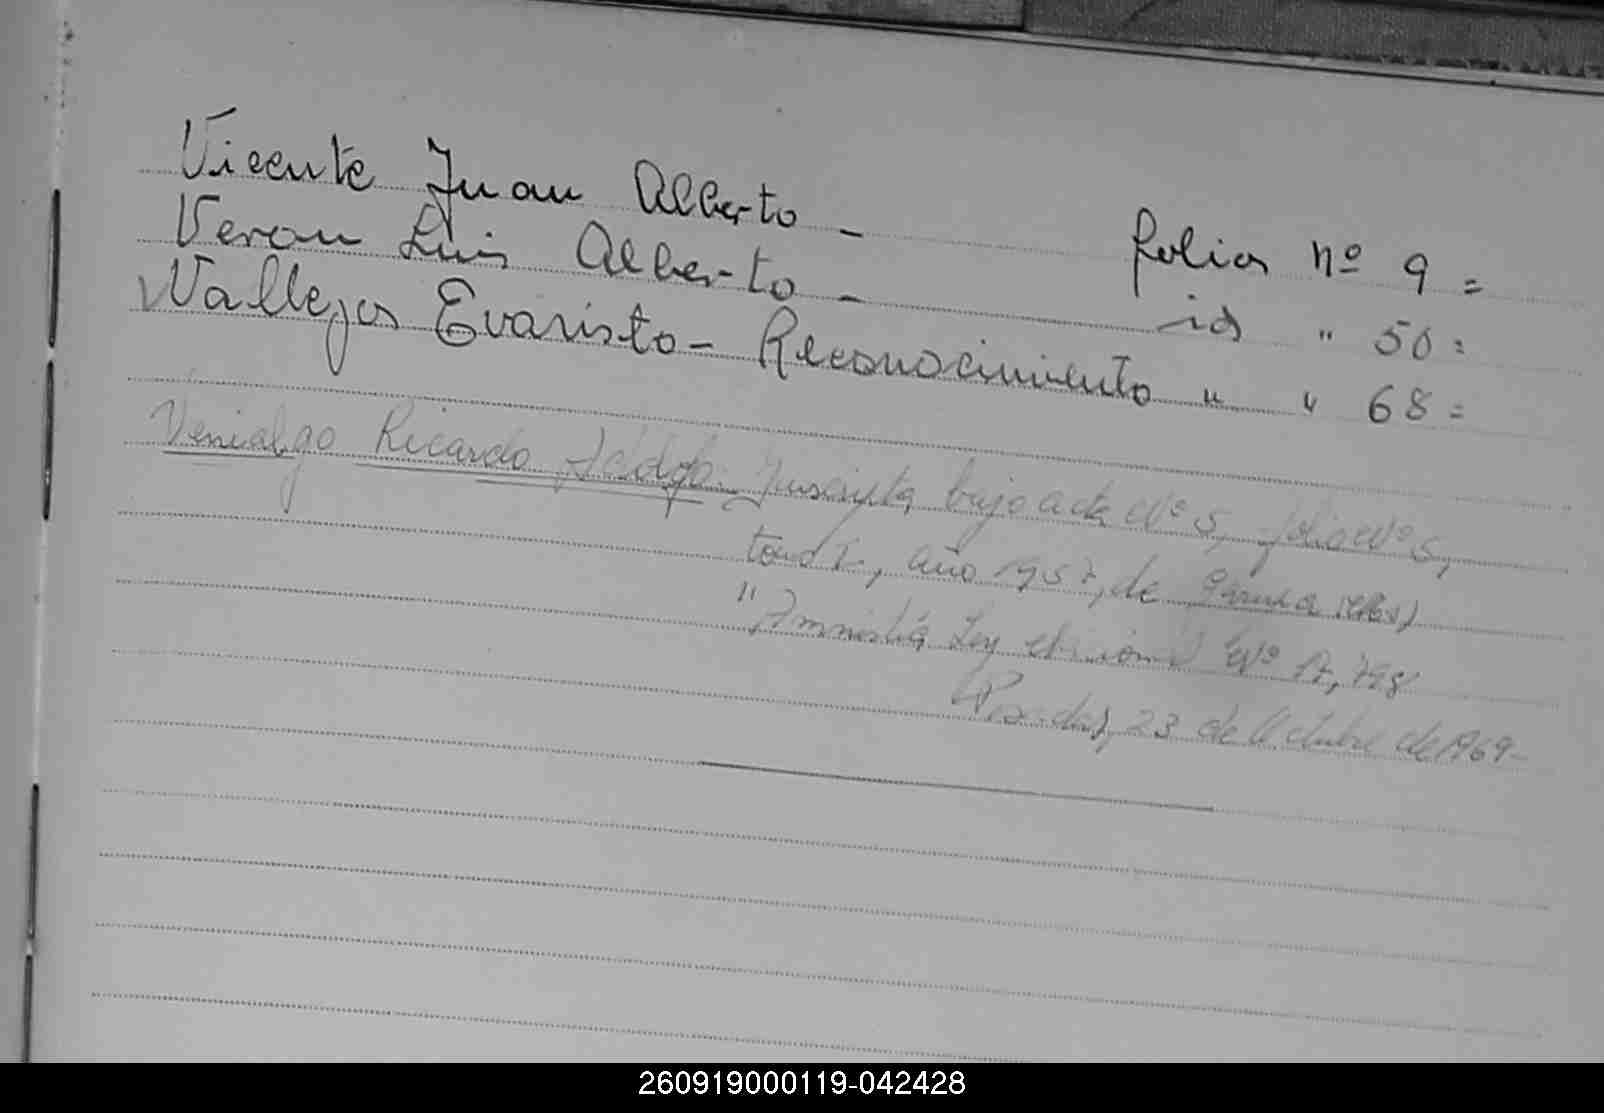 Vicente Juan Alberto - folios nº 9 =
Veron Luis Alberto - id " 50 =
Vallejos Evaristo - Reconocimiento " " 68 =
Venialgo Ricardo Adolfo. Inscripta bajo acta Nº 5, folio Nº 5,
tomo I, año 1957, de
"Amnistía Ley Nº 17,798
Posadas, 23 de Octubre de 1969-
260919000119-042428